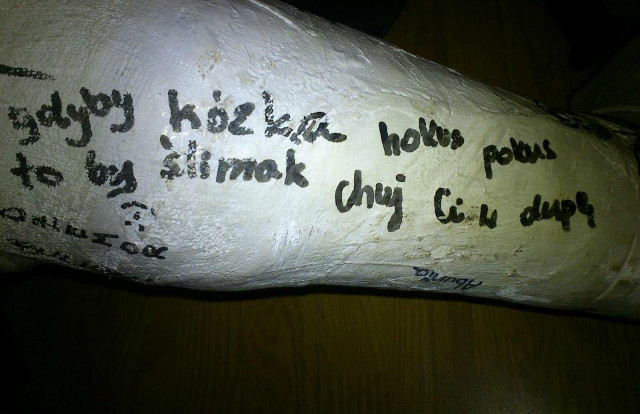 gdyby kózka
to by ślimak
:-)
hokus pokus
chuj Ci w dupę